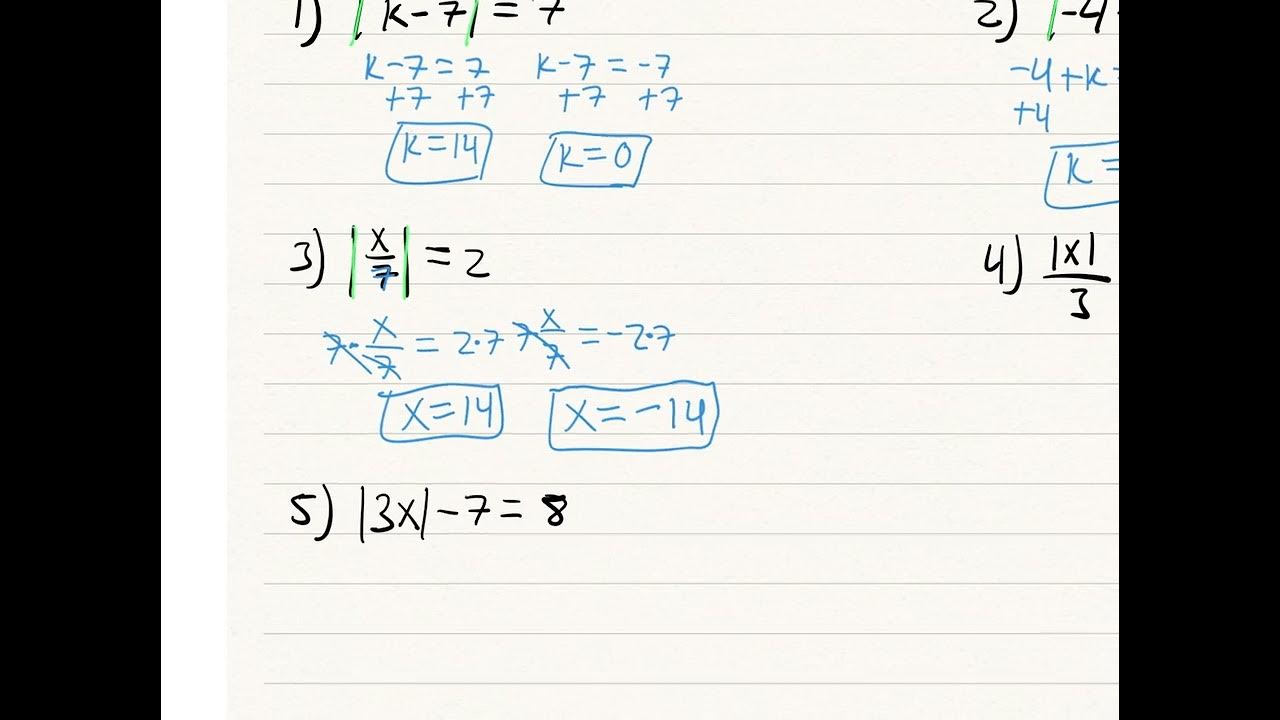 1) |k-7| = 7
k-7 = 7 k-7 = -7
+7 +7 +7 +7
k=14 k=0
2) |-4
-4+k
+4
k=
3) |x/7| = 2
7·x/7 = 2·7 7·x/7 = -2·7
x=14 x=-14
4) |x|/3
5) |3x|-7 = 8